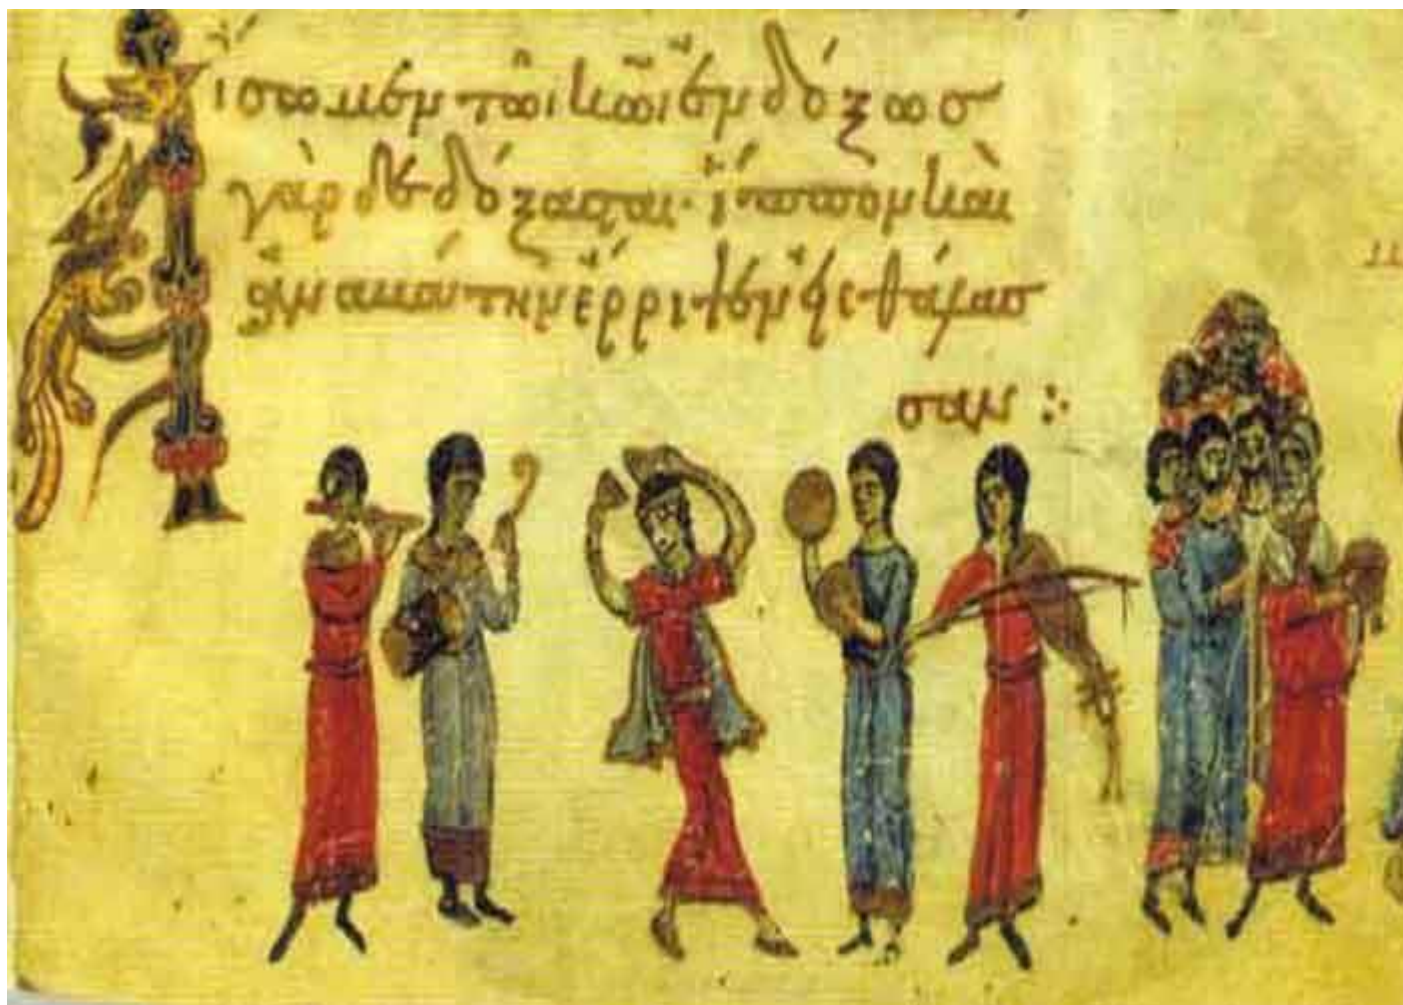 Ἄισωμεν τῶι κ͞ωι ἐνδόξωσ
γὰρ δεδόξασται· ἵππον καὶ
ἀναβάτην ἔρριψεν εἰς θάλασ
σαν :·